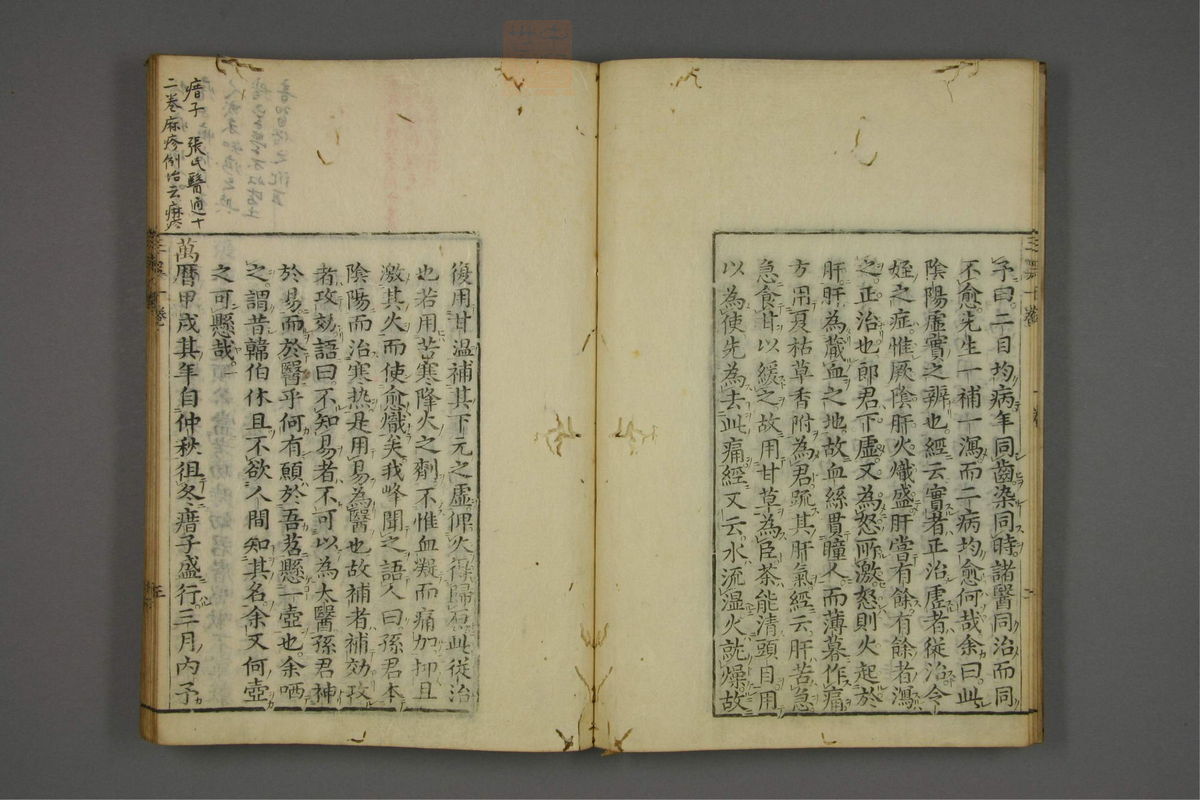 予曰二目均病年同齒染同時諸醫同治而同
不愈先生一補一瀉而二病均愈何哉余曰此
陰陽虛實之辨也經云實者正治虛者從治令
姪之症惟厥陰肝火熾盛肝當有餘有餘者瀉
之正治也郎君下虛又為怒所激怒則火起於
肝肝為藏血之地故血絲貫瞳人而薄暮作痛
方用夏枯草香附為君疏其肝氣經云肝苦急
急食甘以緩之故用甘草為臣茶能清頭目用
以為使先為去此痛經又云水流濕火就燥故
復用甘溫補其下元之虛俾火得歸原此從治
也若用苦寒降火之劑不惟血凝而痛加抑且
激其火而使愈熾矣我峰聞之語人曰孫君本
陰陽而治寒热是用易為醫也故補者補効攻
者攻効語曰不知易者不可以為太醫孫君神
於易而於醫乎何有願於吾苕懸一壺也余哂
之謂昔韓伯休且不欲人間知其名余又何壺
之可懸哉
萬曆甲戌其年自仲秋徂冬瘄子盛行三月內予
瘄子 張氏醫通十
二卷麻疹例治云麻疹